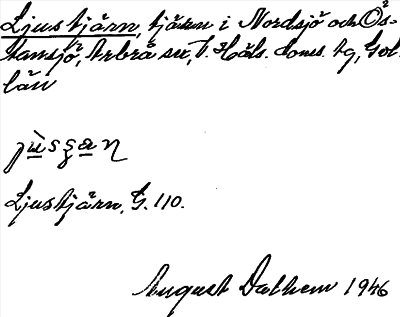 Ljustjärn, tjärn i Nordsjö och Ös-
tansjö, Arbrå sn, V. Häls. doms. tg, Gvl.
län
Ljustjärn, G. 110.
August Dalhem 1946